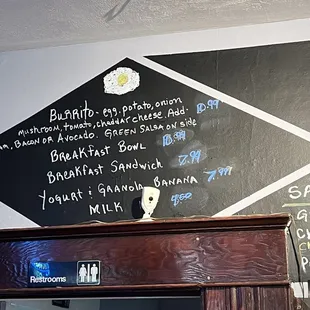 BURRITO - egg, potato, onion 10.99
mushroom, tomato, cheddar cheese. Add-
, BACON OR AVOCADO. GREEN SALSA on side
BREAKfast BOWL 10.99
BREAKfast SANDWICH 7.99
YOGURT & GRANOLA BANANA 7.99
MILK
Restrooms